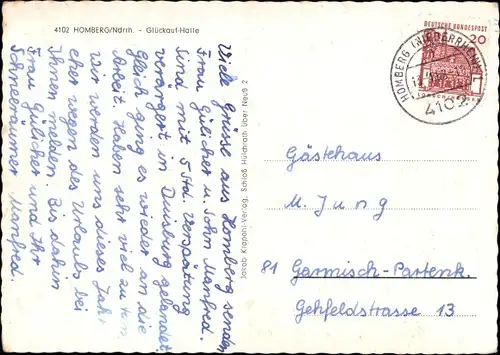 4102 HOMBERG/Ndrrh. - Glückauf-Halle
Viele Grüsse aus Homberg senden
Frau Gülicher u. Sohn Manfred.
Sind mit 5 Std. Verspätung
verärgert in Duisburg gelandet.
Gleich ging es wieder an die
Arbeit. Haben sehr viel zu tun.
Wir werden uns dieses Jahr
eher wegen des Urlaubs bei
Ihnen melden. Bis dahin
Frau Gülicher und Ihr
Schneeräumer Manfred.
Jakob Krapohl-Verlag, Schloß Hülchrath über Neuß 2
DEUTSCHE BUNDESPOST
20
HOMBERG (NIEDERRHEIN)
4102
Gästehaus
M. Jung
81 Garmisch-Partenk.
Gehfeldstrasse 13